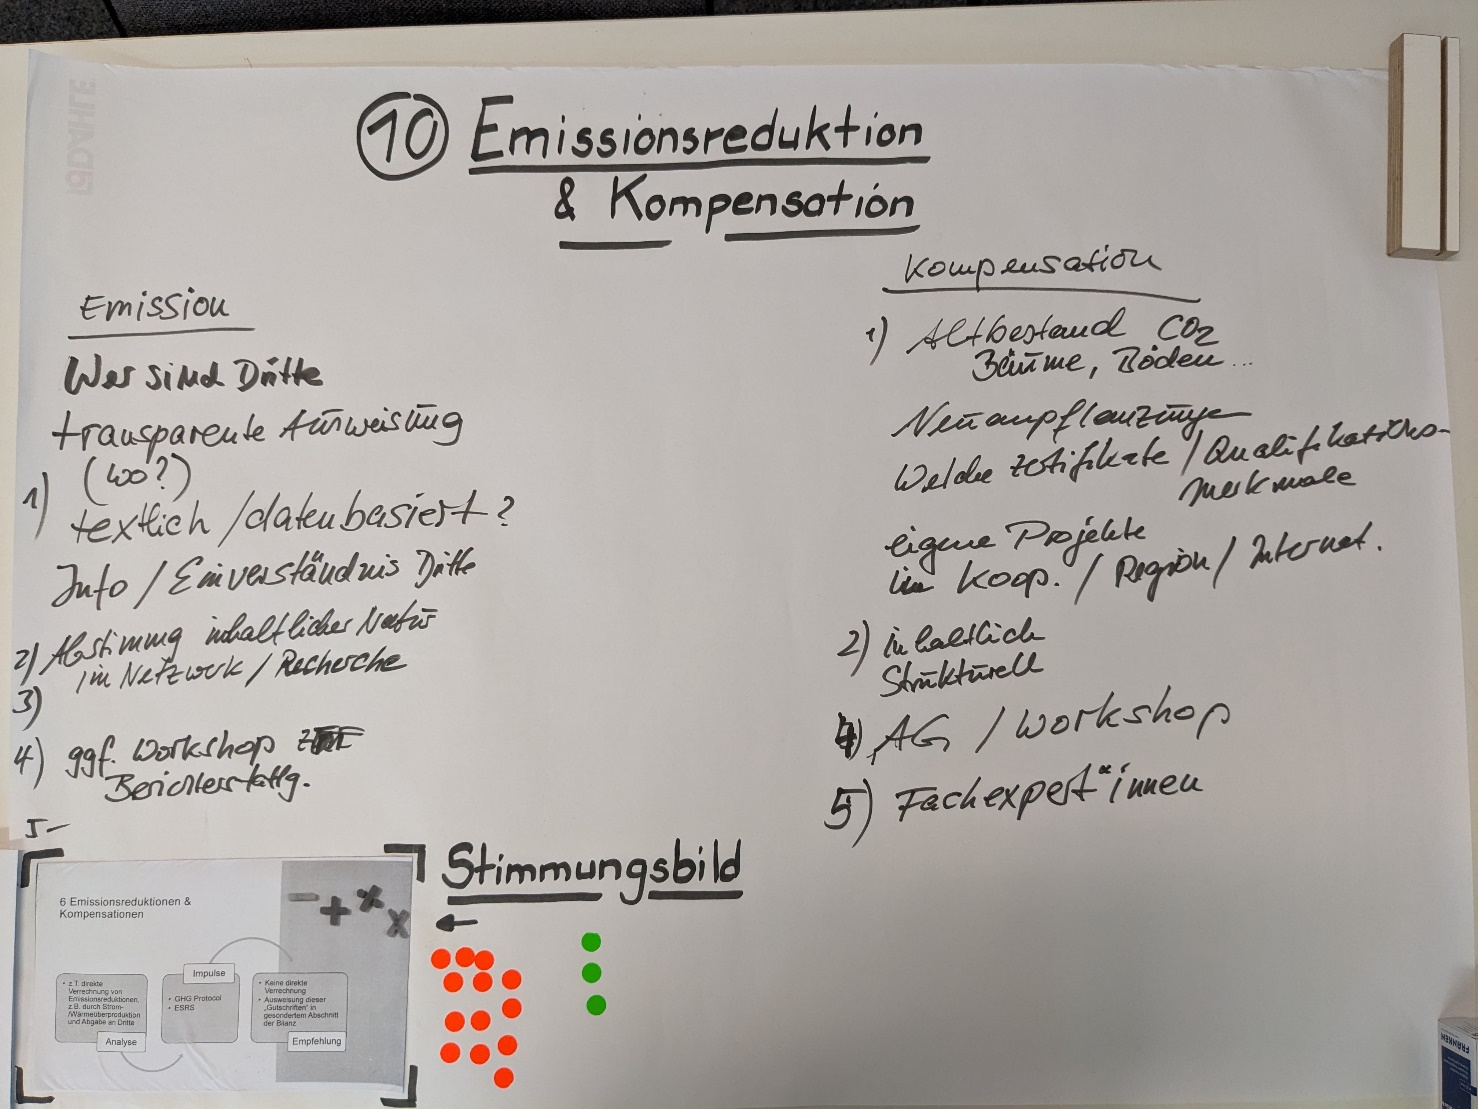 DAHLE
10 Emissionsreduktion
& Kompensation
Emission
Wer sind Dritte
transparente Ausweisung
(wo?)
1) textlich / datenbasiert?
Info / Einverständnis Dritte
2) Abstimmung inhaltlicher Natur
im Netzwerk / Recherche
3)
4) ggf. Workshop
Berichterstattg.
5 –
Kompensation
1) Altbestand CO2
Bäume, Böden...
Neuanpflanzungen
Welche Zertifikate / Qualifikations-
merkmale
eigene Projekte
in Koop. / Region / Internat.
2) inhaltlich
strukturell
4) AG / Workshop
5) Fachexpert*innen
Stimmungsbild
←
6 Emissionsreduktionen &
Kompensationen
• z.T. direkte
Verrechnung von
Emissionsreduktionen,
z.B. durch Strom-
/Wärmeüberproduktion
und Abgabe an Dritte
Analyse
Impulse
• GHG Protocol
• ESRS
• Keine direkte
Verrechnung
• Ausweisung dieser
„Gutschriften" in
gesondertem Abschnitt
der Bilanz
Empfehlung
FRANKEN